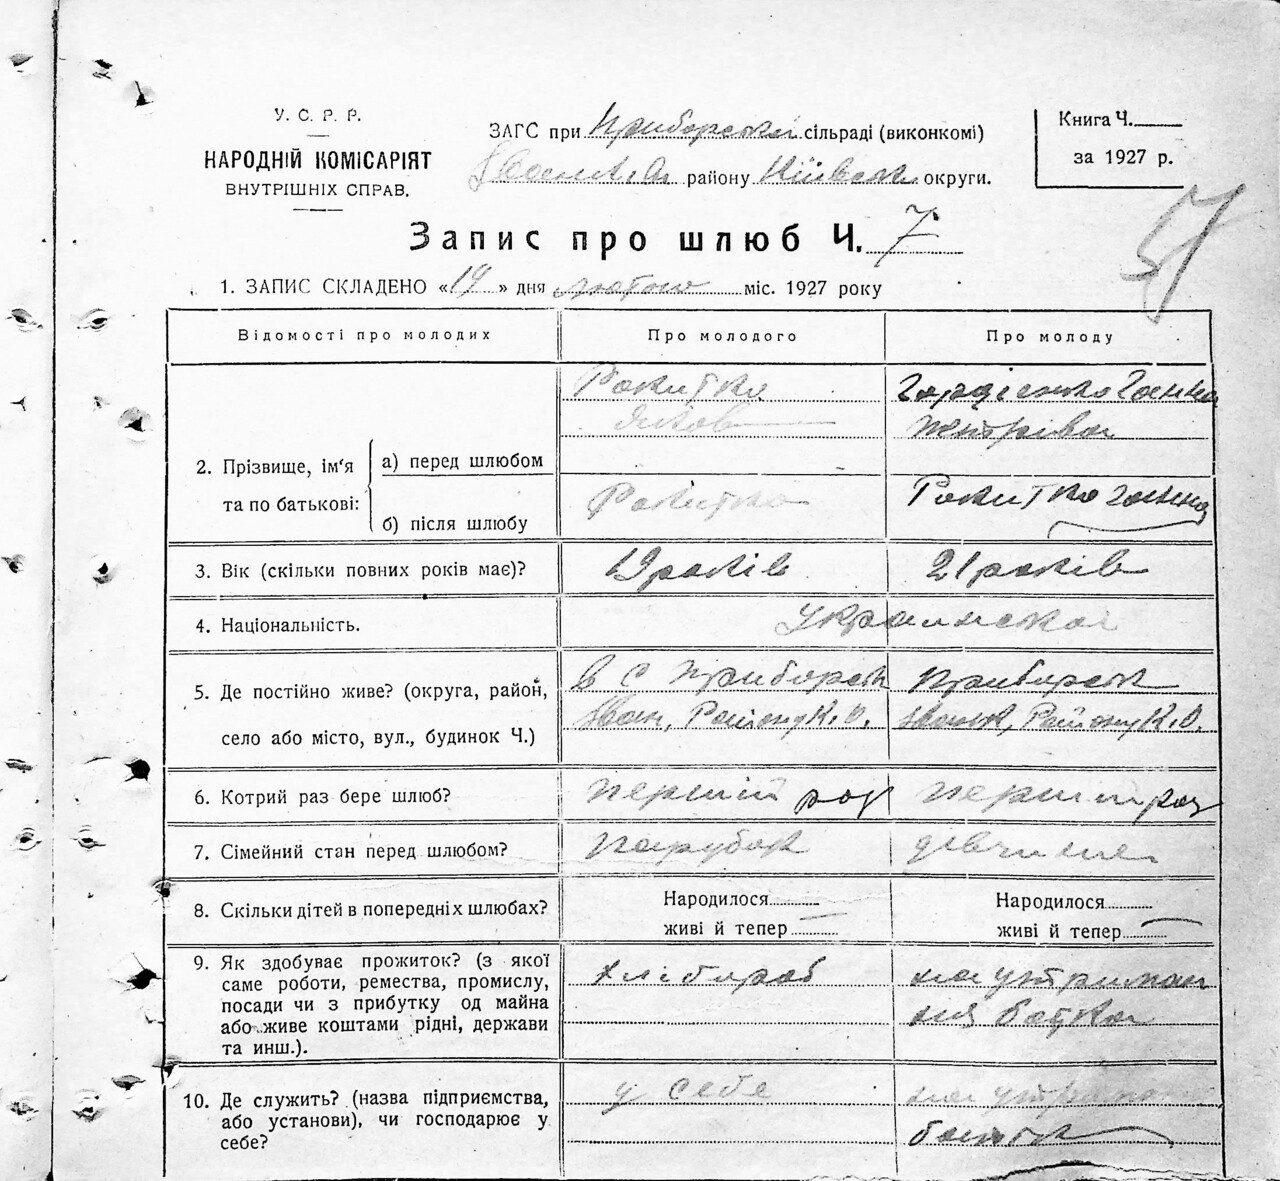 У. С. Р. Р.
НАРОДНІЙ КОМІСАРІЯТ
ВНУТРІШНІХ СПРАВ.
ЗАГС при Приборській сільраді (виконкомі)
району Київськ округи.
Книга Ч.
за 1927 р.
57
Запис про шлюб Ч. 7
1. ЗАПИС СКЛАДЕНО « » дня лютого міс. 1927 року
Відомості про молодих
Про молодого
Про молоду
2. Прізвище, ім'я
та по батькові:
а) перед шлюбом
Рокитко
Яков
Гордієнко Ганна
Петрівна
б) після шлюбу
Рокитко
Рокитко Ганна
3. Вік (скільки повних років має)?
19 років
21 років
4. Національність.
Украинска
5. Де постійно живе? (округа, район,
село або місто, вул., будинок Ч.)
в с Приборськ
Іван. Району К. О.
Приборськ
Іванк. Району К. О.
6. Котрий раз бере шлюб?
перший раз
перший раз
7. Сімейний стан перед шлюбом?
парубок
дівчина
8. Скільки дітей в попередніх шлюбах?
Народилося
живі й тепер
Народилося
живі й тепер
9. Як здобуває прожиток? (з якої
саме роботи, ремества, промислу,
посади чи з прибутку од майна
або живе коштами рідні, держави
та инш.).
хлібороб
на утриман
ня батька
10. Де служить? (назва підприємства,
або установи), чи господарює у
себе?
у себе
на утриман
батьк